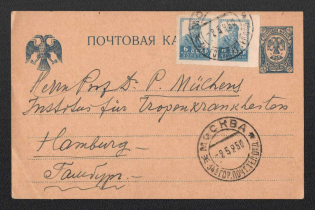 ПОЧТОВАЯ КА
Herrn Prof. Dr. P. Mühlens
Institut für Tropenkrankheiten
Hamburg
Гамбург
МОСКВА